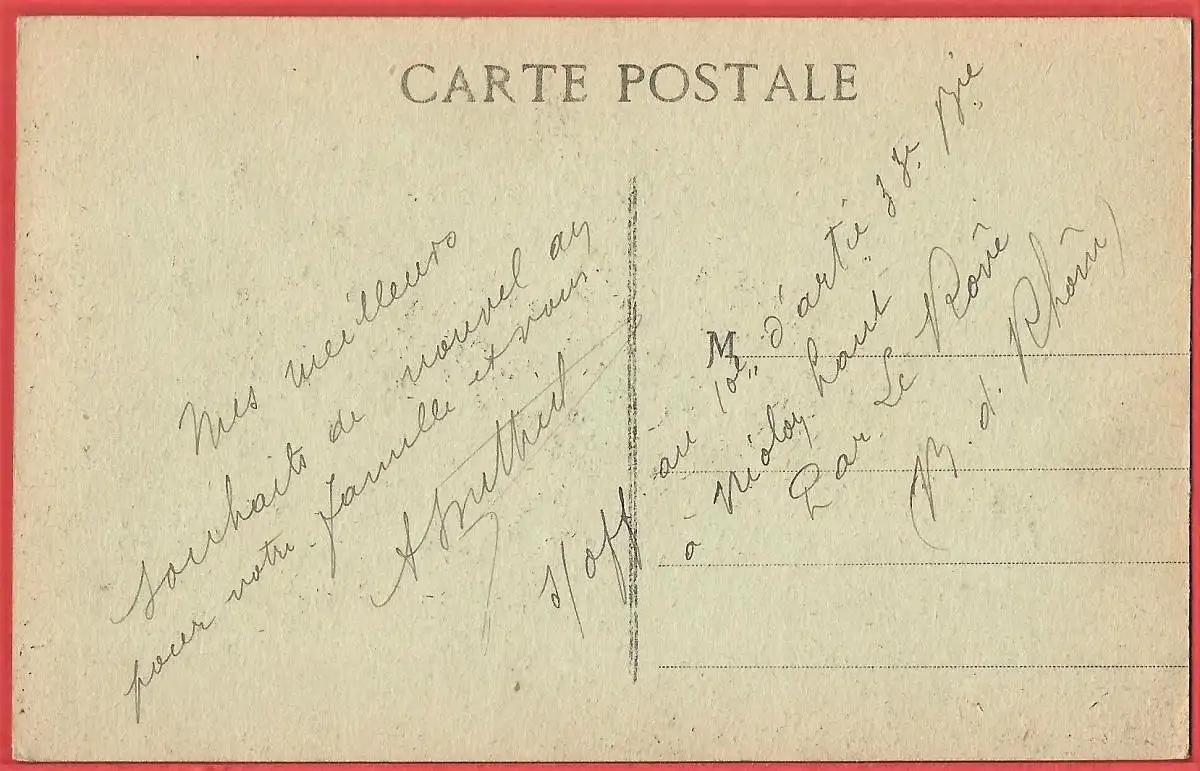 CARTE POSTALE
Mes meilleurs
souhaits de nouvel an
pour votre famille et vous.
s/off au 10e d'artie 33e Bie
à Niolon haut
Par Le Rove
(B. d. Rhône)
M